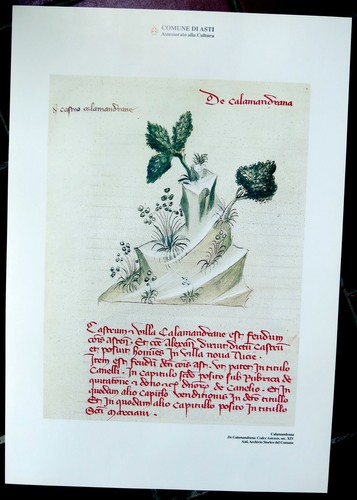 COMUNE DI ASTI
Assessorato alla Cultura
De Calamandrana
castro calamandrane
Castrum & villa Calamandrane est feudum
cois asten. Et coe Alexan diruit dictum Castrum
et posuit homines In villa noua Nicie.
Item est feudu dci cois ast. Vt patet in titulo
Canelli. In capitulo sede posito sub Rubrica de
quitatione & dono de Canelio. Et In
quodam alio capitulo venditionis In dcto titullo
Et In quodam alio Capitullo posito In titullo
Sci Marciani.
Calamandrana
De Calamandrana. Codex Astensis, sec. XIV
Asti, Archivio Storico del Comune